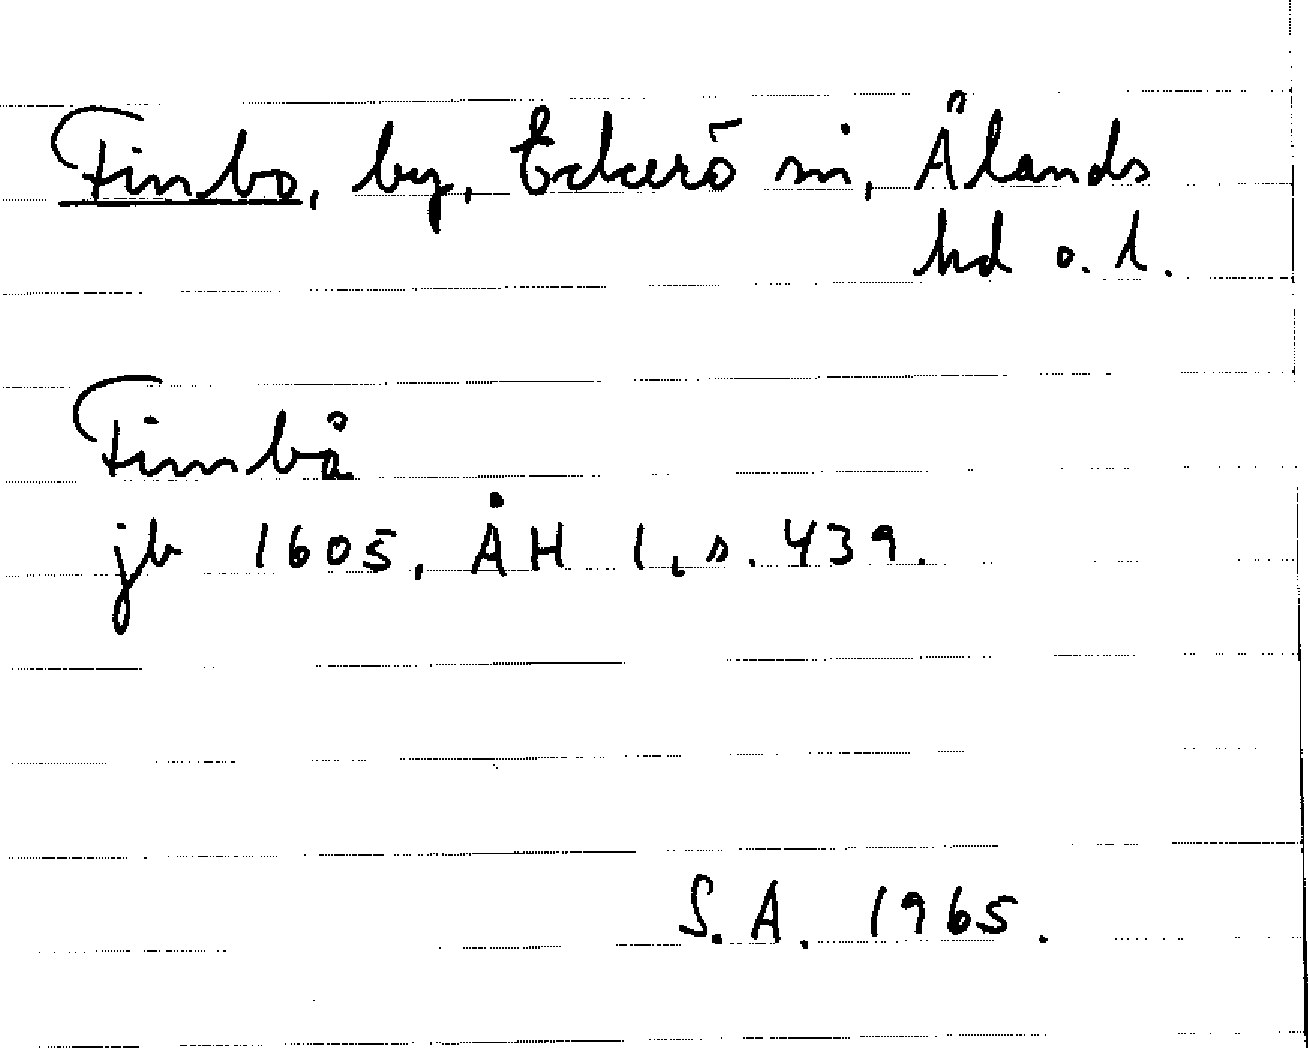 Finbo, by, Eckerö sn, Ålands
hd o. l.
Finnbå
jb 1605, ÅH 1, s. 439.
S.A. 1965.